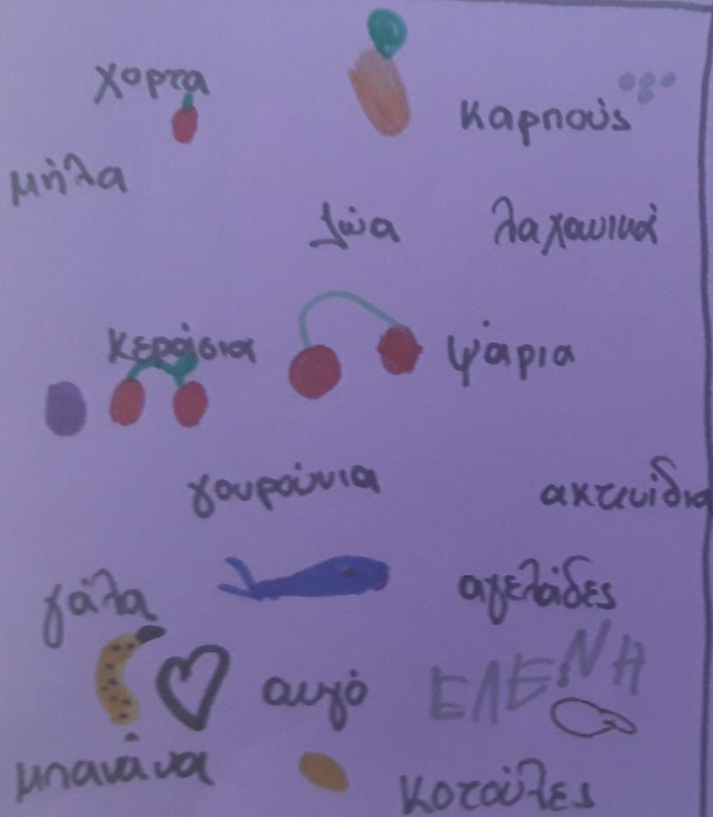 χορτα
καρπούς
μήλα
ζώα
λαχανικά
κεράσια
ψάρια
γουρούνια
ακτινίδια
γάλα
αγελάδες
αυγό
ΕΛΕΝΗ
μπανάνα
κοτούλες